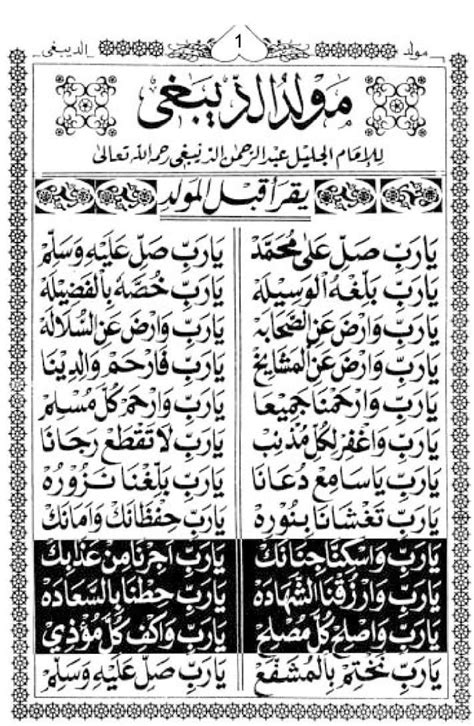 مولد 1 الديبغى
مولد الديبغى
للإمام الجليل عبد الرحمن الديبغى رحمه الله تعالى
يقرأ قبل المولد
يَارَبِّ صَلِّ عَلَى مُحَمَّدْ يَارَبِّ صَلِّ عَلَيْهِ وَسَلِّمْ
يَارَبِّ بَلِّغْهُ الْوَسِيلَهْ يَارَبِّ خُصَّهُ بِالْفَضِيلَهْ
يَارَبِّ وَارْضَ عَنِ الصَّحَابَهْ يَارَبِّ وَارْضَ عَنِ السُّلَالَهْ
يَارَبِّ وَارْضَ عَنِ الْمَشَايِخْ يَارَبِّ فَارْحَمْ وَالِدِينَا
يَارَبِّ وَارْحَمْنَا جَمِيعًا يَارَبِّ وَارْحَمْ كُلَّ مُسْلِمْ
يَارَبِّ وَاغْفِرْ لِكُلِّ مُذْنِبْ يَارَبِّ لَا تَقْطَعْ رَجَانَا
يَارَبِّ يَاسَامِعْ دُعَانَا يَارَبِّ بَلِّغْنَا نَزُورُهْ
يَارَبِّ تَغْشَانَا بِنُورِهْ يَارَبِّ حِفْظَانَكْ وَامَانَكْ
يَارَبِّ وَاسْكِنَّا جِنَانَكْ يَارَبِّ اَجِرْنَا مِنْ عَذَابِكْ
يَارَبِّ وَارْزُقْنَا الشَّهَادَهْ يَارَبِّ حِطْنَا بِالسَّعَادَهْ
يَارَبِّ وَاصْلِحْ كُلَّ مُصْلِحْ يَارَبِّ وَاكْفِ كُلَّ مُؤْذِيْ
يَارَبِّ نَخْتِمْ بِالْمُشَفَّعْ يَارَبِّ صَلِّ عَلَيْهِ وَسَلِّمْ